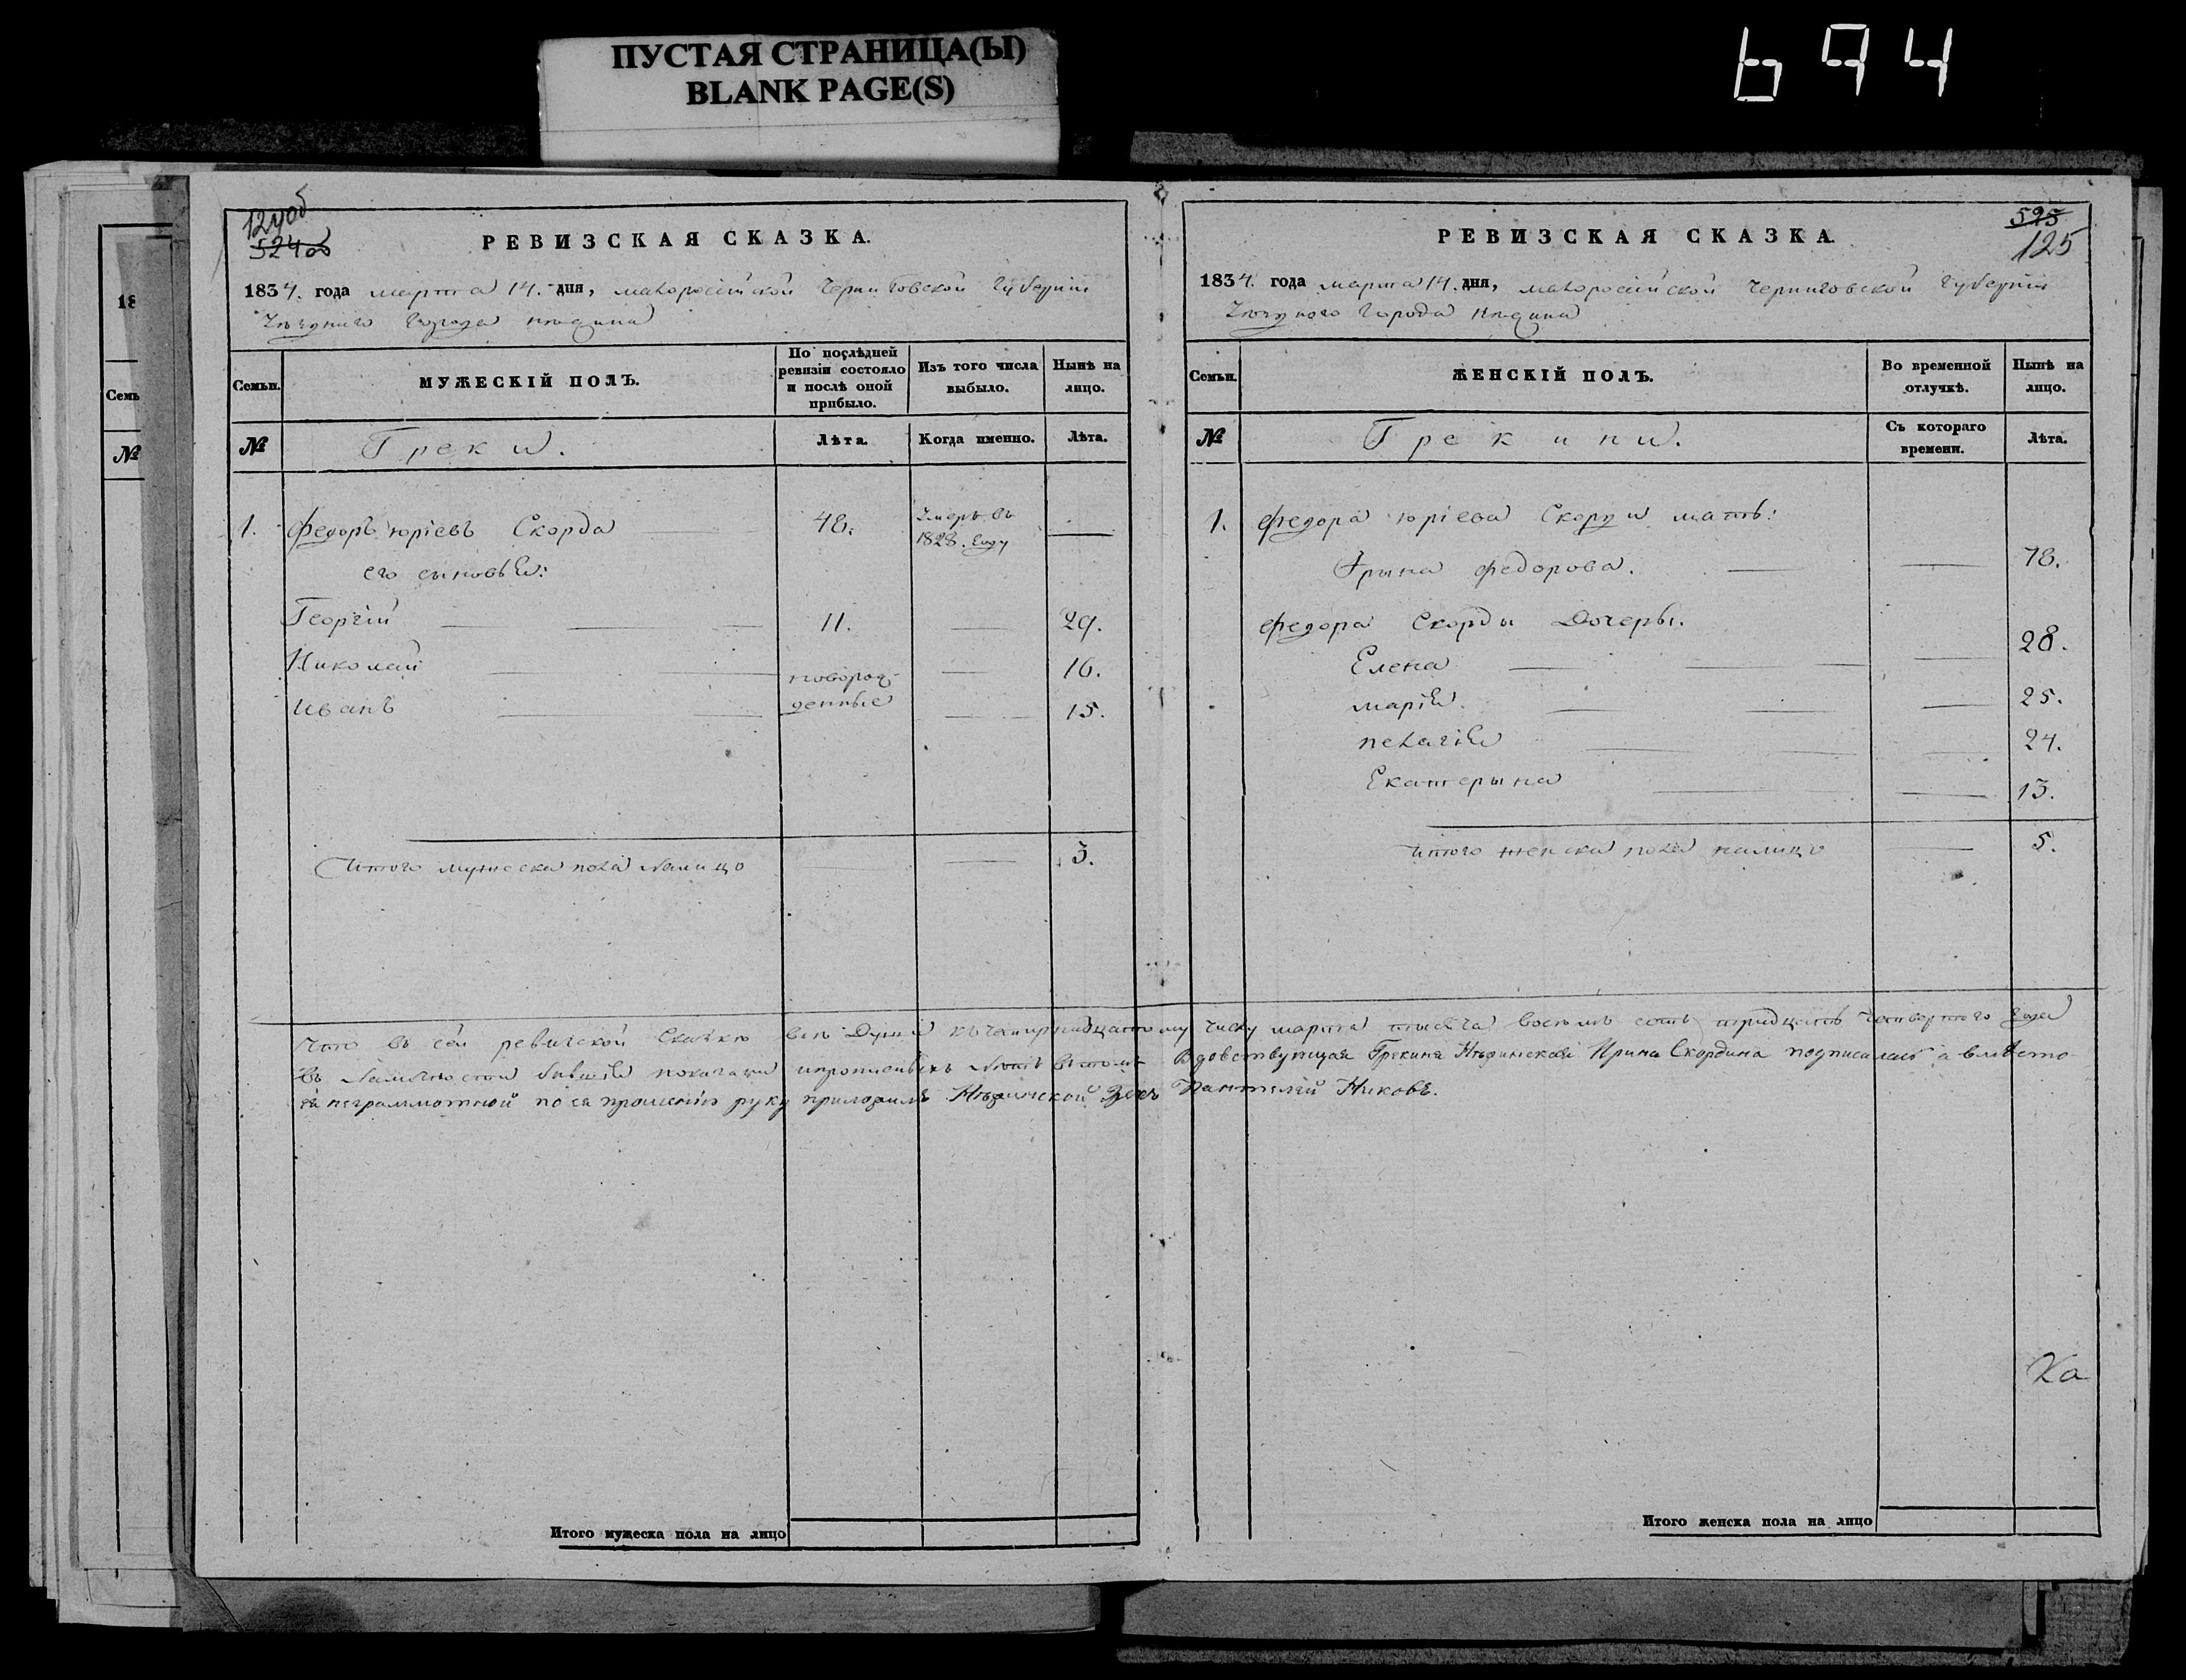 ПУСТАЯ СТРАНИЦА(Ы)
BLANK PAGE(S)
694
18
Семь
№
124об
524об
РЕВИЗСКАЯ СКАЗКА.
1834. года марта 14. дня, малоросійской Черниговской Губерніи
Уезднаго города нежина
Семьи.
МУЖЕСКІЙ ПОЛЪ.
По послѣдней ревизіи состояло и послѣ оной прибыло.
Изъ того числа выбыло.
Нынѣ на лицо.
№
Греки.
Лѣта.
Когда именно.
Лѣта.
1. Федоръ юріевъ Скорда 48. Умеръ въ 1828. году
его сыновья:
Георгій 11. 29.
Николай новорож- 16.
иванъ денные 15.
Итого мужеска пола налицо 3.
Итого мужеска пола на лицо
525
125
РЕВИЗСКАЯ СКАЗКА.
1834. года марта 14. дня, малоросійской Черниговской Губерніи
Уезднаго города нежина
Семьи.
ЖЕНСКІЙ ПОЛЪ.
Во временной отлучкѣ.
Нынѣ на лицо.
№
Грекини.
Съ котораго времени.
Лѣта.
1. федора юріева Скорди мать:
Ірына федорова. 78.
федора Скорды Дочеры.
Елена 28.
марія. 25.
пелагія 24.
Екатерына 13.
итого женска пола налицо 5.
Что въ сей ревизской Сказке все Души къ четырнадцатому числу марта тысяча восемь сотъ тридцать четвертого года
въ наличности бывшія показаны и прописныхъ нетъ в томъ Вдовствующая Грекиня Нѣжинская Ирина Скордина подписалась а вмѣсто
ея неграммотной по ея прошенію руку приложилъ Нѣжинской Грекъ Пантелѣй Никовъ.
Итого женска пола на лицо